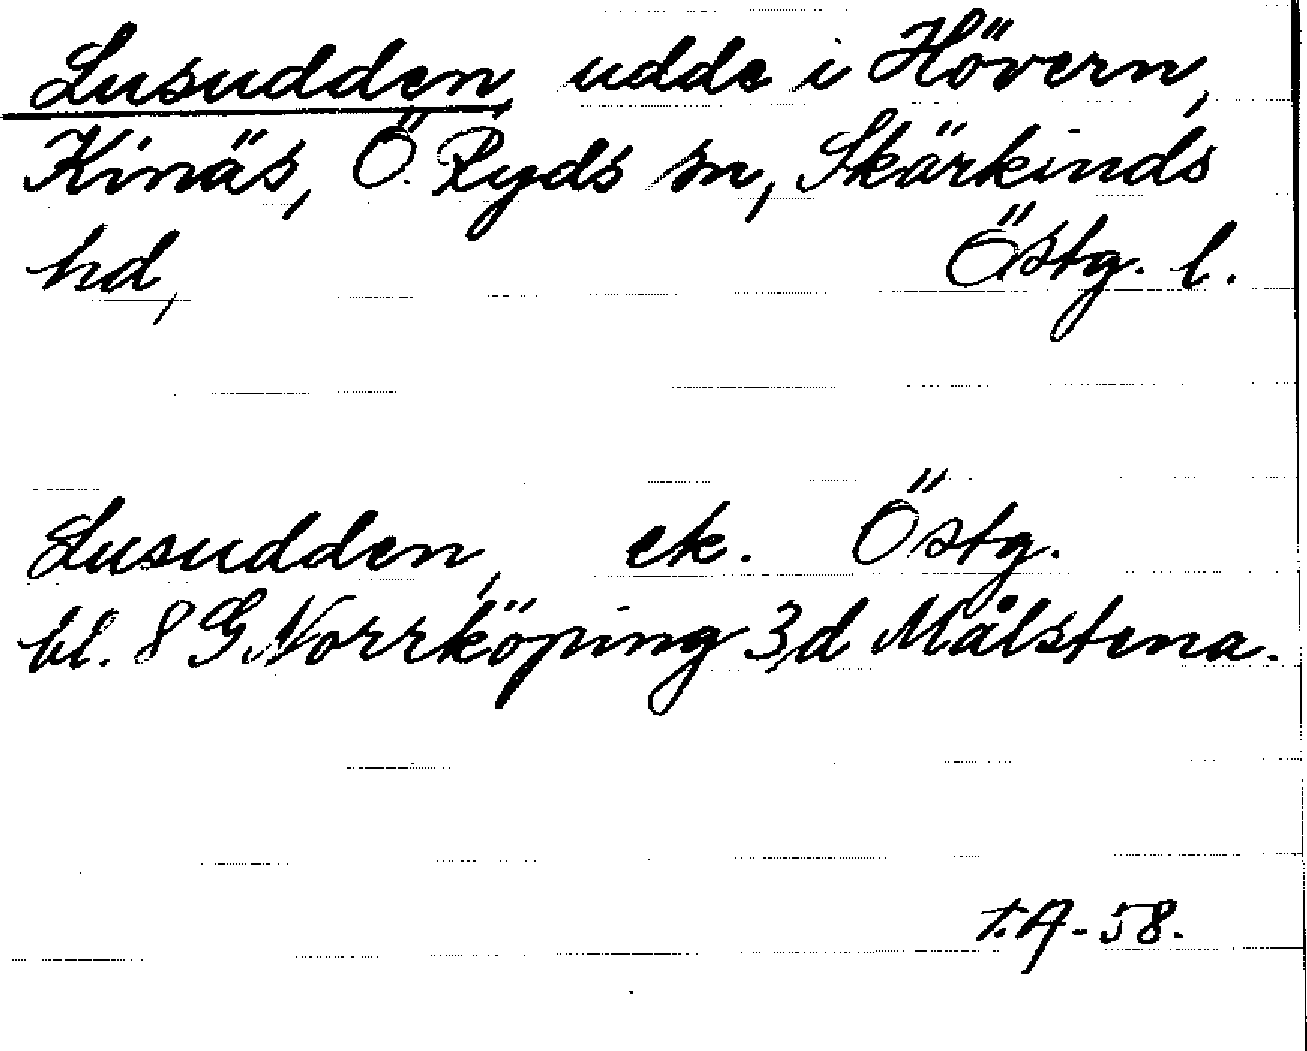 Lusudden, udde i Hövern,
Kinäs, Ö. Ryds sn, Skärkinds
hd, Östg. l.
Lusudden, ek. Östg.
bl. 8 G Norrköping 3,d Målstena.
T.A-58.